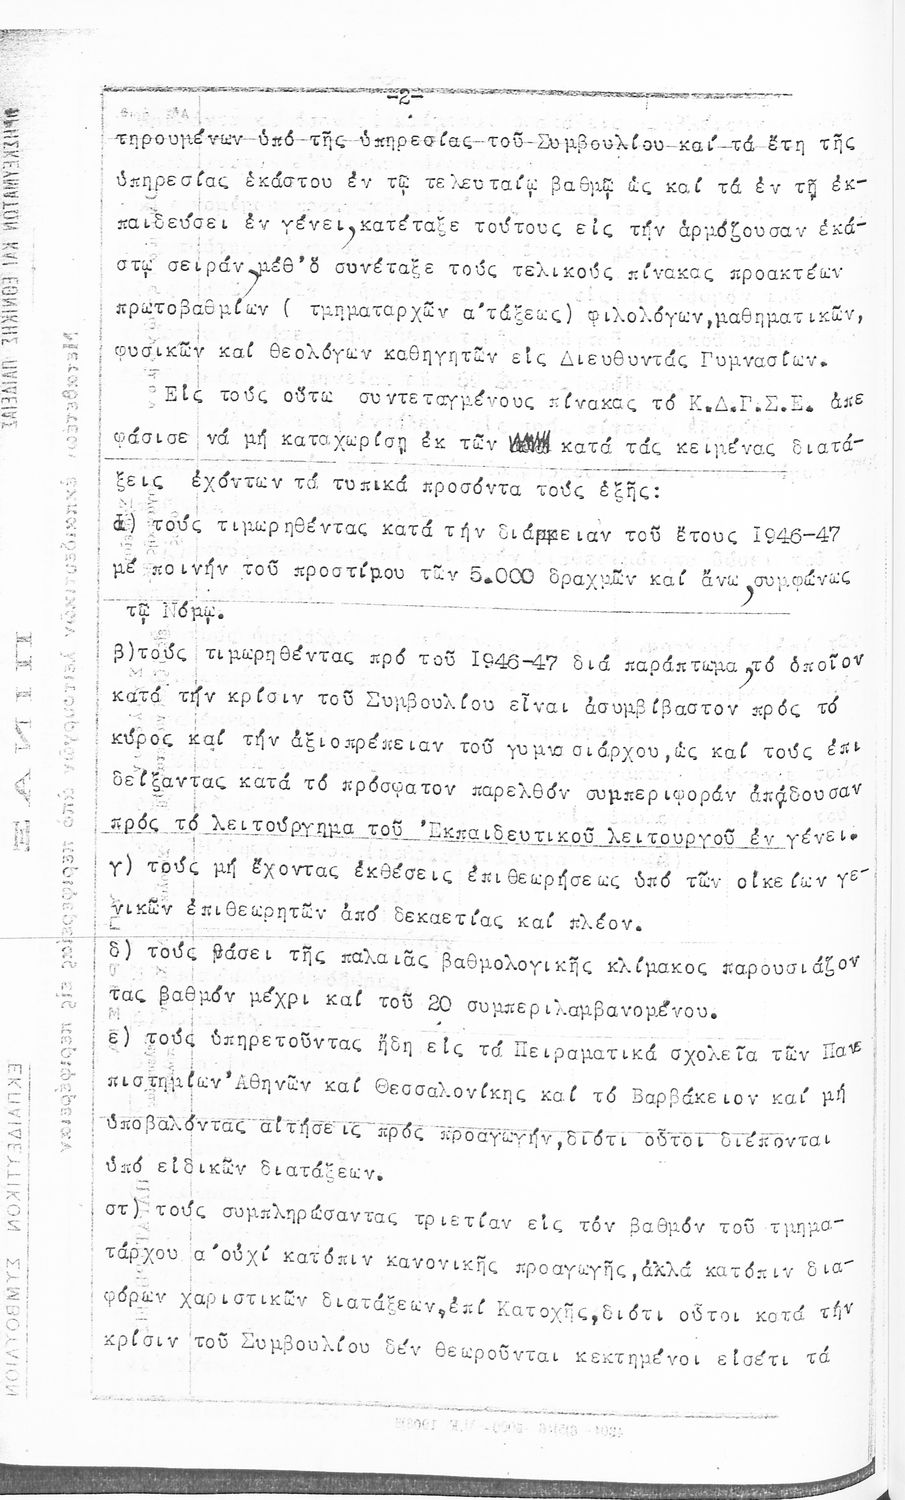 -2-
τηρουμένων ὑπό τῆς ὑπηρεσίας τοῦ Συμβουλίου καί τά ἔτη τῆς
ὑπηρεσίας ἑκάστου ἐν τῷ τελευταίῳ βαθμῷ ὡς καί τά ἐν τῇ ἐκ-
παιδεύσει ἐν γένει, κατέταξε τούτους εἰς τήν ἁρμόζουσαν ἑκά-
στῳ σειράν, μέθ'ὅ συνέταξε τούς τελικούς πίνακας προακτέων
πρωτοβαθμίων ( τμηματαρχῶν α'τάξεως) φιλολόγων,μαθηματικῶν,
φυσικῶν καί θεολόγων καθηγητῶν εἰς Διευθυντάς Γυμνασίων.
Εἰς τούς οὕτω συντεταγμένους πίνακας τό Κ.Δ.Γ.Σ.Ε. ἀπε
φάσισε νά μή καταχωρίσῃ ἐκ τῶν κατά τάς κειμένας διατά-
ξεις ἐχόντων τά τυπικά προσόντα τούς ἑξῆς:
α) τούς τιμωρηθέντας κατά τήν διάρκειαν τοῦ ἔτους 1946-47
μέ ποινήν τοῦ προστίμου τῶν 5.000 δραχμῶν καί ἄνω, συμφώνως
τῷ Νόμῳ.
β)τούς τιμωρηθέντας πρό τοῦ 1946-47 διά παράπτωμα, τό ὁποῖον
κατά τήν κρίσιν τοῦ Συμβουλίου εἶναι ἀσυμβίβαστον πρός τό
κύρος καί τήν ἀξιοπρέπειαν τοῦ γυμνασιάρχου,ὡς καί τούς ἐπι
δείξαντας κατά τό πρόσφατον παρελθόν συμπεριφοράν ἀπᾴδουσαν
πρός τό λειτούργημα τοῦ 'Εκπαιδευτικοῦ λειτουργοῦ ἐν γένει.
γ) τούς μή ἔχοντας ἐκθέσεις ἐπιθεωρήσεως ὑπό τῶν οἰκείων γε-
νικῶν ἐπιθεωρητῶν ἀπό δεκαετίας καί πλέον.
δ) τούς βάσει τῆς παλαιᾶς βαθμολογικῆς κλίμακος παρουσιάζον
τας βαθμόν μέχρι καί τοῦ 20 συμπεριλαμβανομένου.
ε) τούς ὑπηρετοῦντας ἤδη εἰς τά Πειραματικά σχολεῖα τῶν Πανε
πιστημίων 'Αθηνῶν καί Θεσσαλονίκης καί τό Βαρβάκειον καί μή
ὑποβαλόντας αἰτήσεις πρός προαγωγήν,διότι οὗτοι διέπονται
ὑπό εἰδικῶν διατάξεων.
στ) τούς συμπληρώσαντας τριετίαν εἰς τόν βαθμόν τοῦ τμημα-
τάρχου α'οὐχί κατόπιν κανονικῆς προαγωγῆς,ἀλλά κατόπιν δια-
φόρων χαριστικῶν διατάξεων,ἐπί Κατοχῆς,διότι οὗτοι κατά τήν
κρίσιν τοῦ Συμβουλίου δέν θεωροῦνται κεκτημένοι εἰσέτι τά